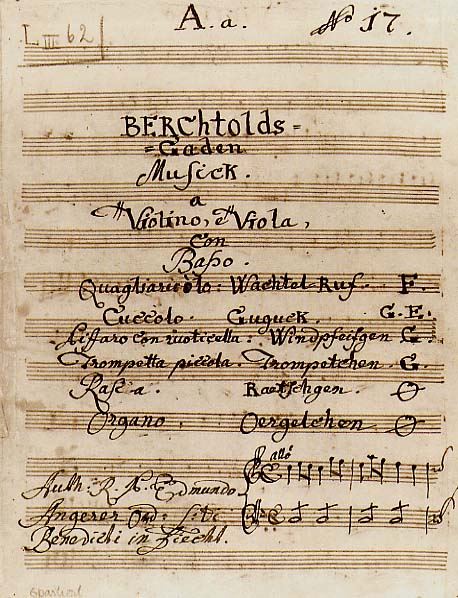 A. a. No 17.
L III 62
BERChtolds=
=Gaden
Musick.
a
Violino, è Viola,
con
Baßo.
Quagliariċolo: Wachtel-Ruf. F.
Cuccolo. Guguck. G. E.
Ziffaro con ruoticella: Windpfeifgen G.
Trompetta piccola. Trompetchen. G.
Rasca. Raetschgen.
Organo. Oergelchen
allò
Auth: R. P. Edmundo
Angerer Ord: Sti:
Benedicti in Fiecht.